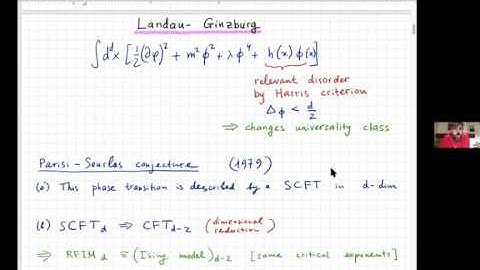 Landau-Ginzburg
∫d^dx [ 1/2 (∂φ)² + m²φ² + λφ⁴ + h(x)φ(x) ]
relevant disorder
by Harris criterion
Δφ < d/2
⇒ changes universality class
Parisi-Sourlas conjecture (1979)
(a) This phase transition is described by a SCFT in d-dim
(b) SCFT_d ⇒ CFT_{d-2} (dimensional
reduction)
⇒ RFIM_d = (Ising model)_{d-2} [same critical exponents]